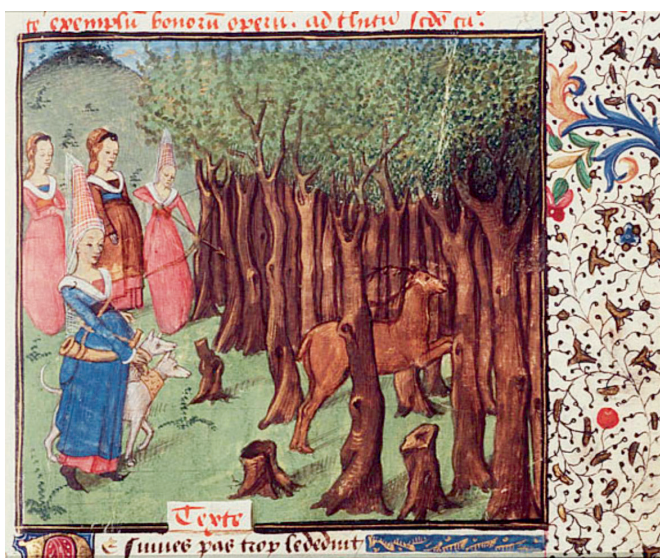 te exemplū bonorū operū. ad thitū scdo ca°.
Texte
NE suiues pas trop lededuit